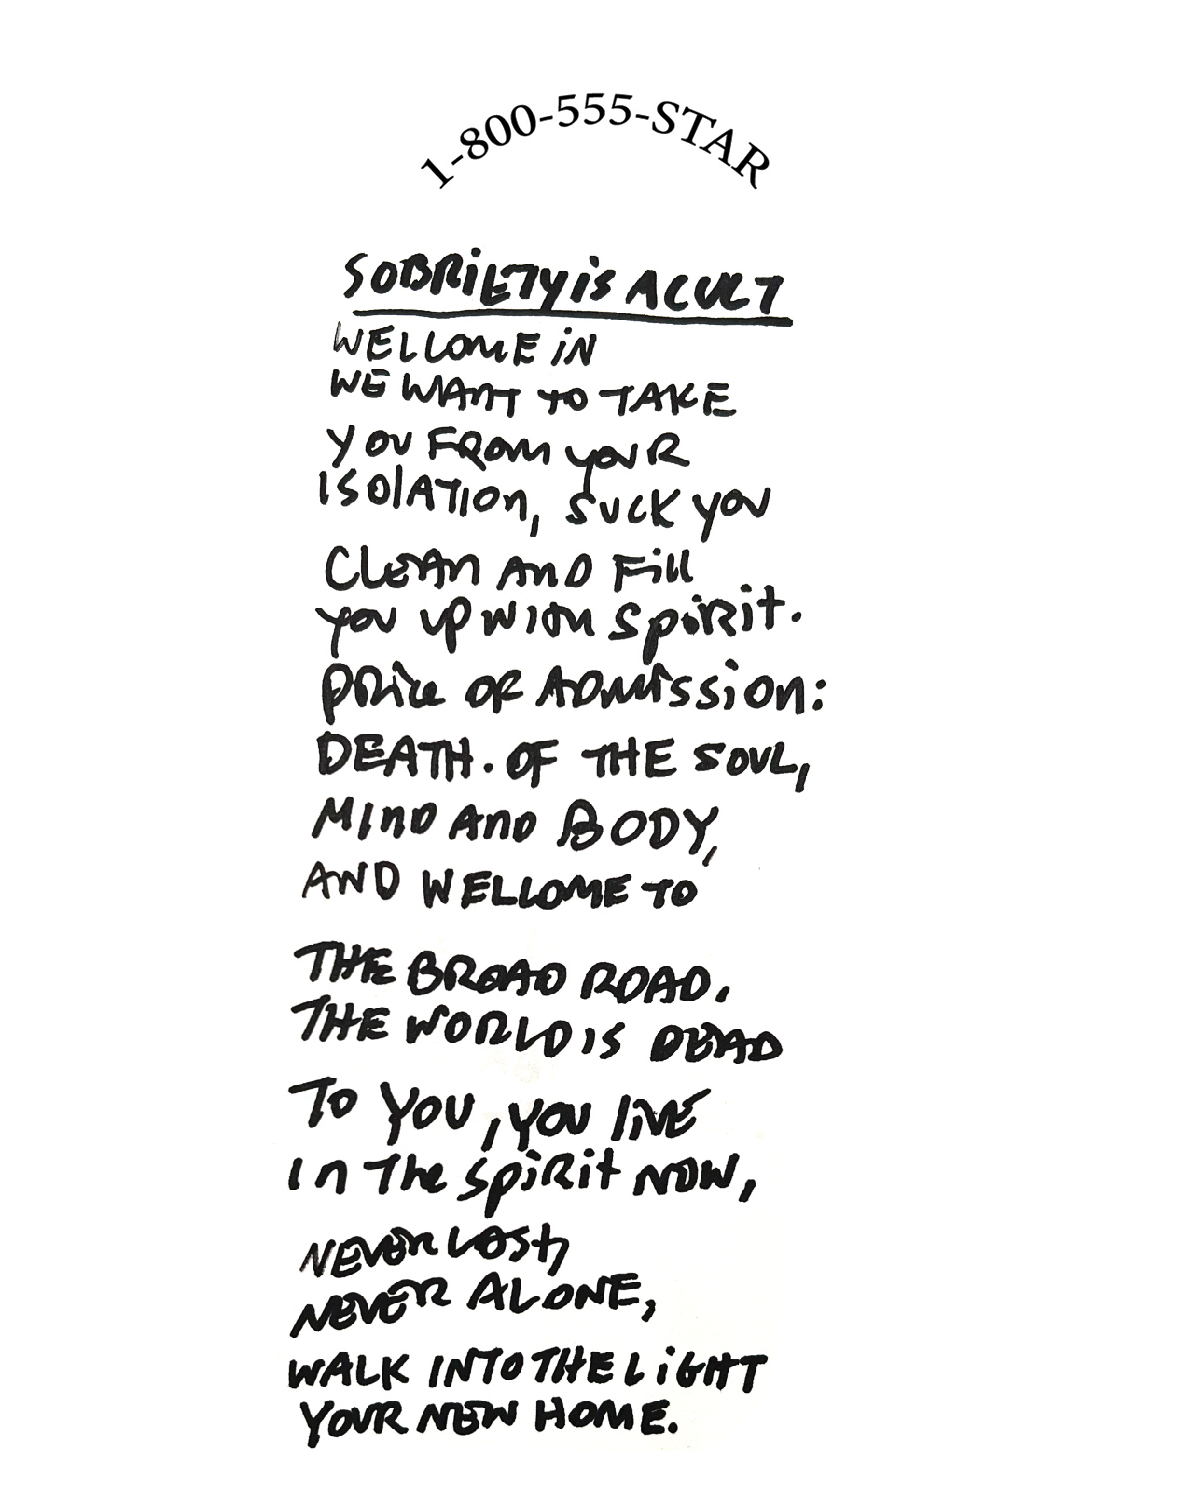 1-800-555-STAR
SOBRiETy is A CULT
WELCOME iN
WE WANT TO TAKE
YOU FROM YOUR
ISOlATION, SUCK YOU
CLEAN AND Fill
you up WITH Spirit.
PRice OF ADMission:
DEATH. OF THE SOUL,
MIND AND BODY,
AND WELCOME TO
THE BROAD ROAD.
THE WORLD IS DEAD
TO YOU, YOU liVE
In The SpiRit NOW,
NEVER LOST,
NEVER ALONE,
WALK INTO THE LiGHT
YOUR NEW HOME.